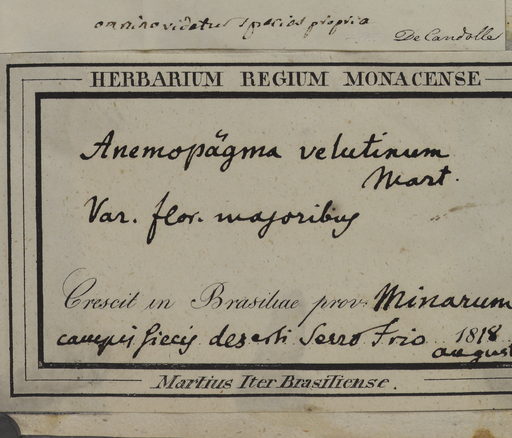 omnino videtur species propria
De Candolle
HERBARIUM REGIUM MONACENSE
Anemopägma velutinum
Mart.
Var. flor. majoribus
Crescit in Brasiliae prov. Minarum
campis siccis deserti Serro Frio 1818
august
Martius Iter Brasiliense.